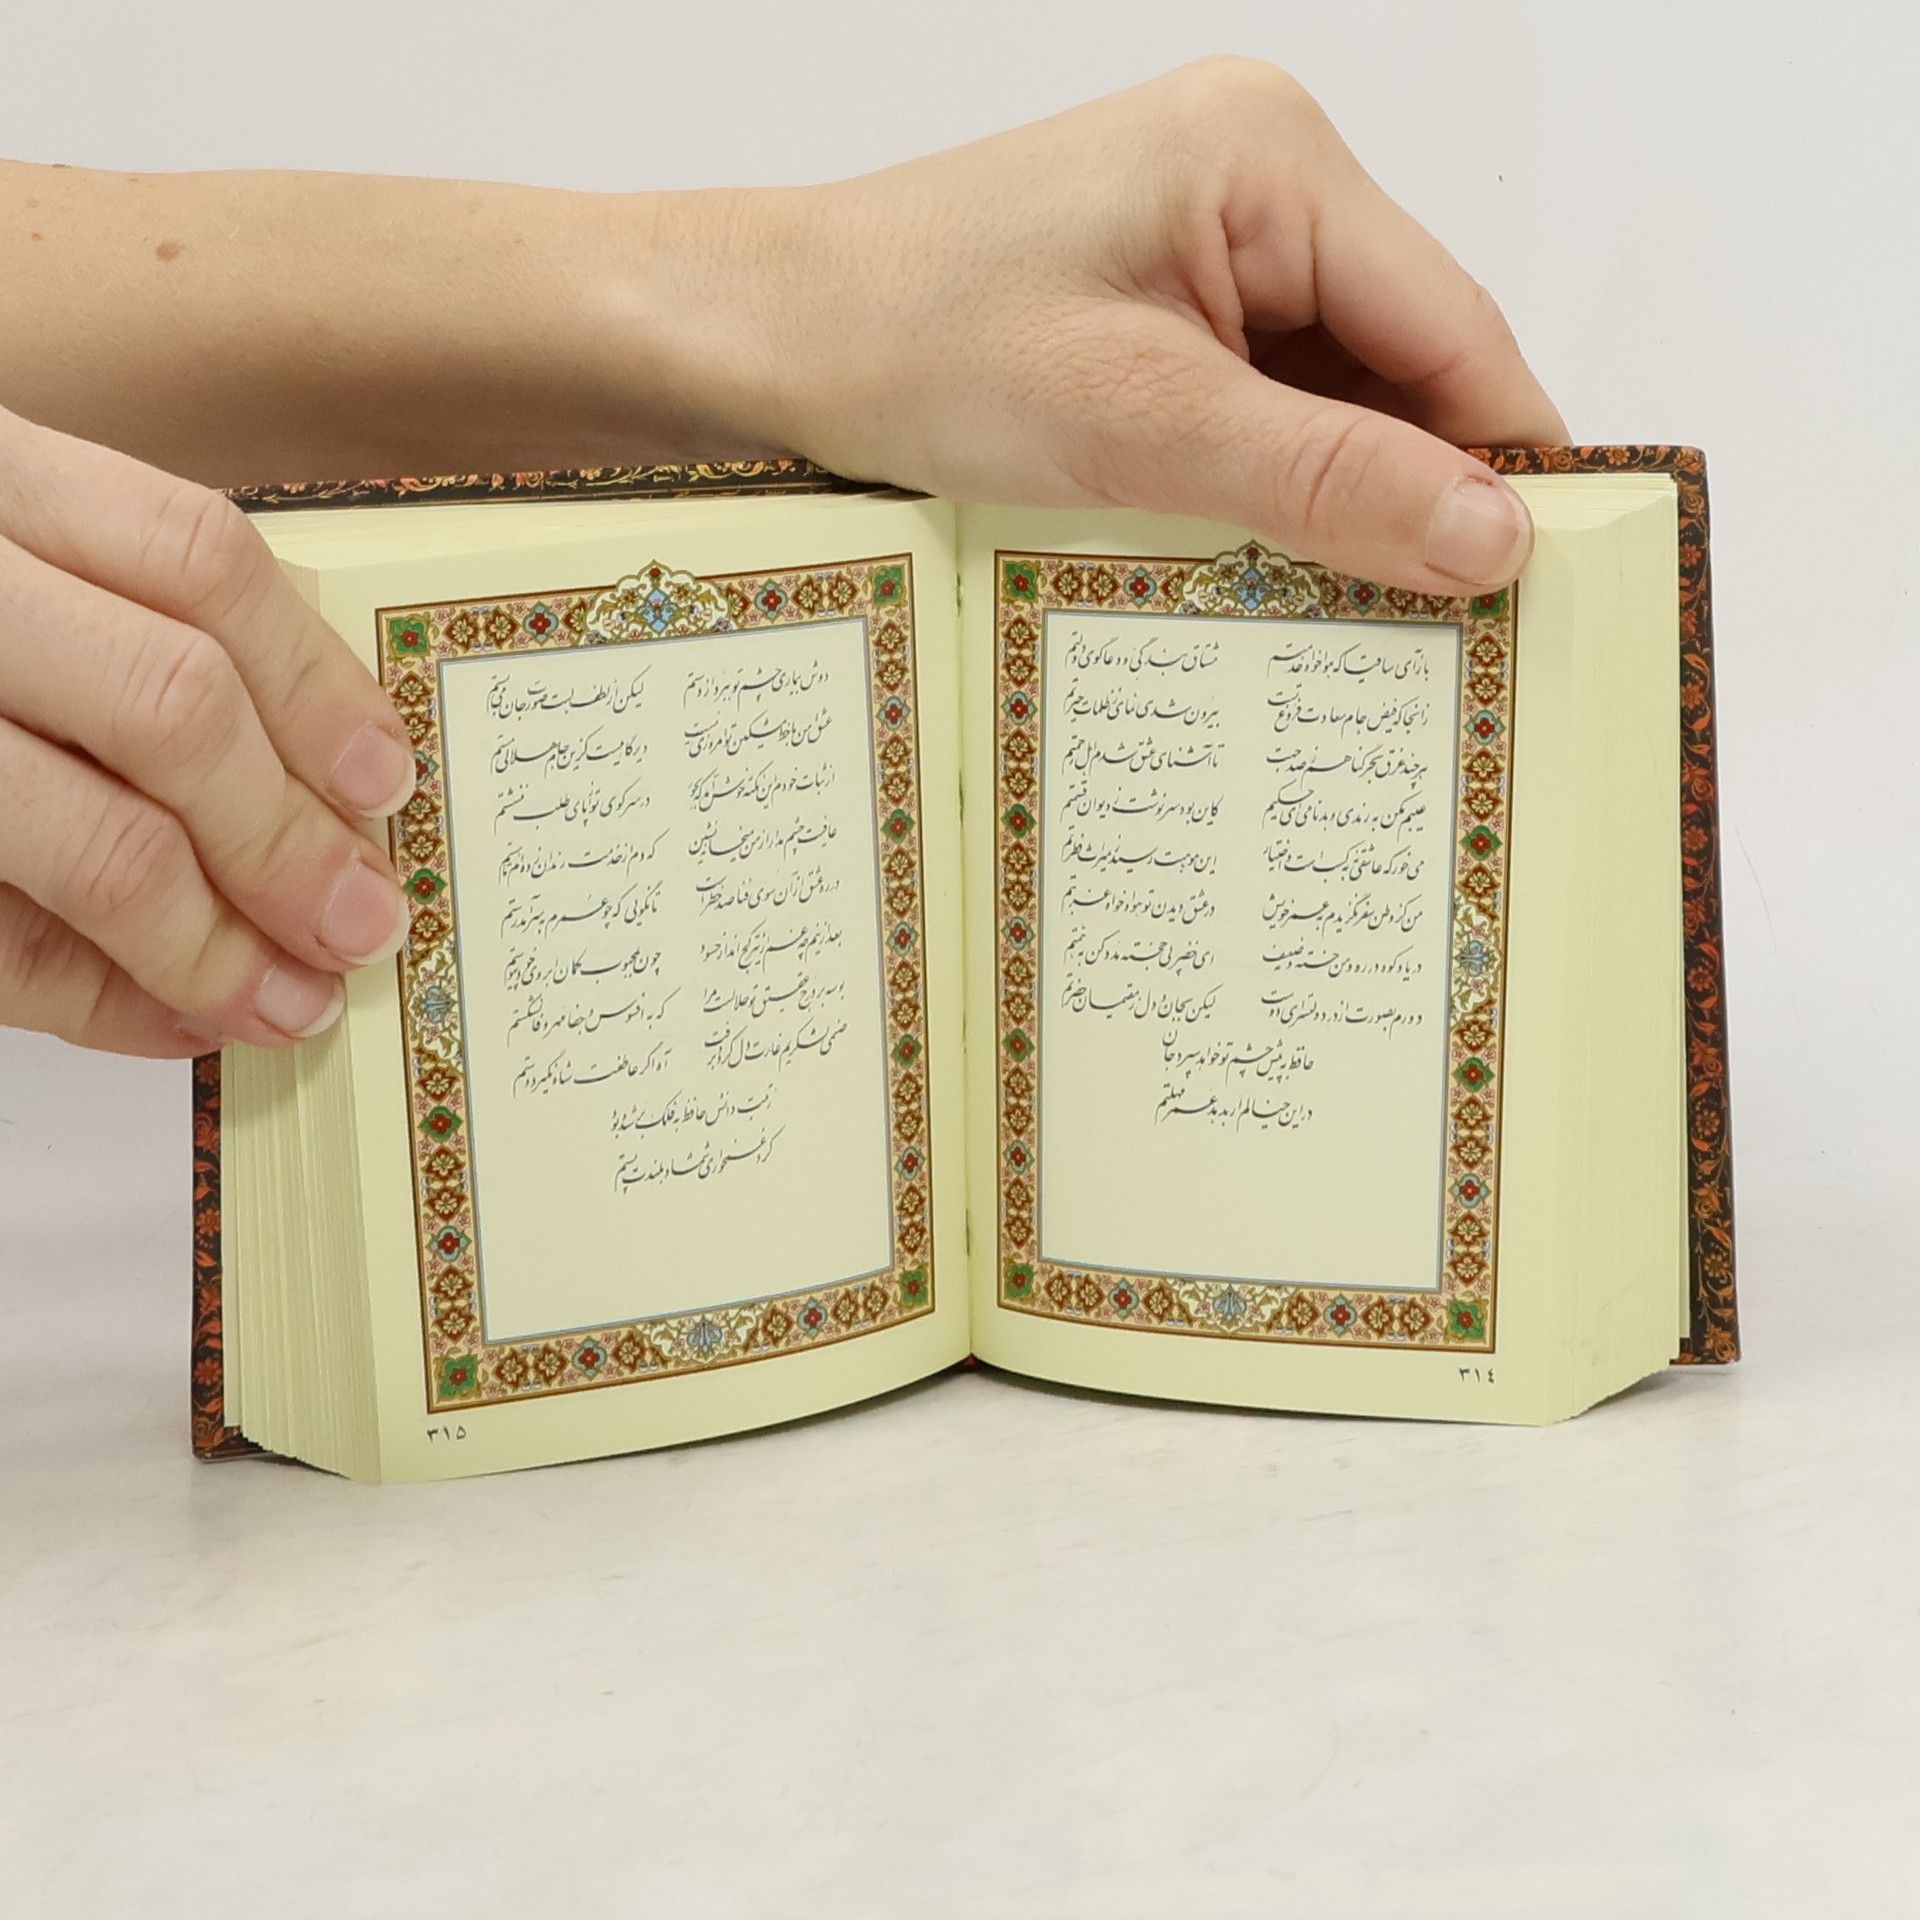 بازآی ساقیا که هواخواه خدمتم مشتاق بندگی و دعاگوی دولتم
زانجا که فیض جام سعادت فروغ تست بیرون شدی نمای ز ظلمات حیرتم
هر چند غرق بحر گناهم ز صد جهت تا آشنای عشق شدم اهل رحمتم
عیبم مکن به رندی و بدنامی ای حکیم کاین بود سرنوشت ز دیوان قسمتم
می خور که عاشقی نه به کسب است و اختیار این موهبت رسید ز میراث فطرتم
من کز وطن سفر نگزیدم به عمر خویش در عشق دیدن تو هواخواه غربتم
دریا و کوه در ره و من خسته و ضعیف ای خضر پی خجسته مدد کن به همتم
دورم بصورت از در دولتسرای دوست لیکن بجان و دل ز مقیمان حضرتم
حافظ به پیش چشم تو خواهد سپرد جان
در این خیالم ار بدهد عمر مهلتم
۳۱٤
دوش بیماری چشم تو ببرد از دستم لیکن از لطف لبت صورت جان می‌بستم
عشق من با خط مشکین تو امروزی نیست دیرگاهیست کزین جام هلالی مستم
از ثبات خودم این نکته خوش آمد که بجور در سر کوی تو از پای طلب ننشستم
عافیت چشم مدار از من میخانه‌نشین که دم از خدمت رندان زده‌ام تا هستم
در ره عشق از آن سوی فنا صد خطرست تا نگویی که چو عمرم به سر آمد رستم
بعد ازینم چه غم از تیر کج انداز حسود چون به محبوب کمان ابروی خود پیوستم
بوسه بر درج عقیق تو حلالست مرا که به افسوس و جفا مهر وفا نشکستم
صنمی لشکریم غارت دل کرد و برفت آه اگر عاطفت شاه نگیرد دستم
رتبت دانش حافظ به فلک بر شده بود
کرد غمخواری شمشاد بلندت پستم
۳۱۵